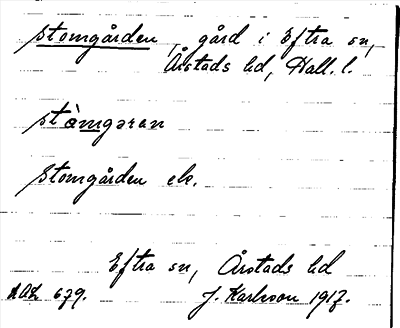 Stomgården, gård i Eftra sn,
Årstads hd, Hall. l.
stòmgaran
Stomgården ek.
Eftra sn, Årstads hd
AAL 679. J. Karlsson 1917.